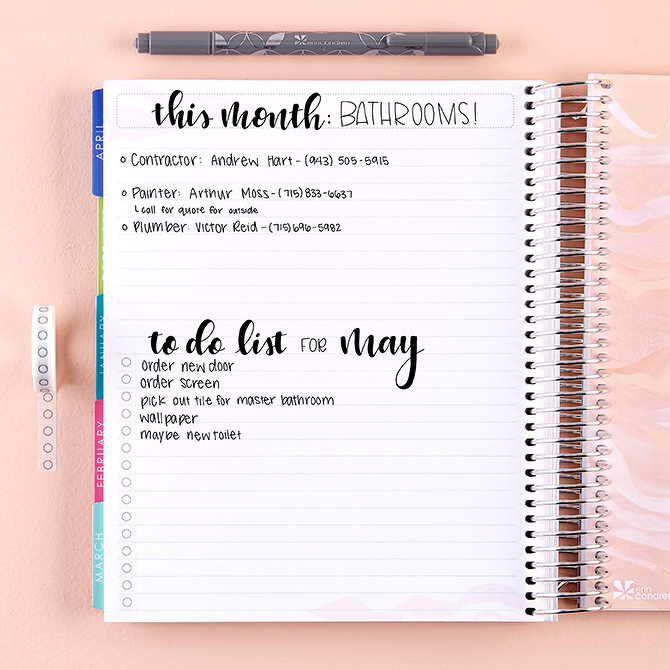 erin condren
this month: BATHROOMS!
Contractor: Andrew Hart - (943) 505-5915
Painter: Arthur Moss - (715) 833-6637
call for quote for outside
Plumber: Victor Reid - (715) 696-5982
to do list FOR May
order new door
order screen
pick out tile for master bathroom
wallpaper
maybe new toilet
APRIL
JANUARY
FEBRUARY
MARCH
erin
condren